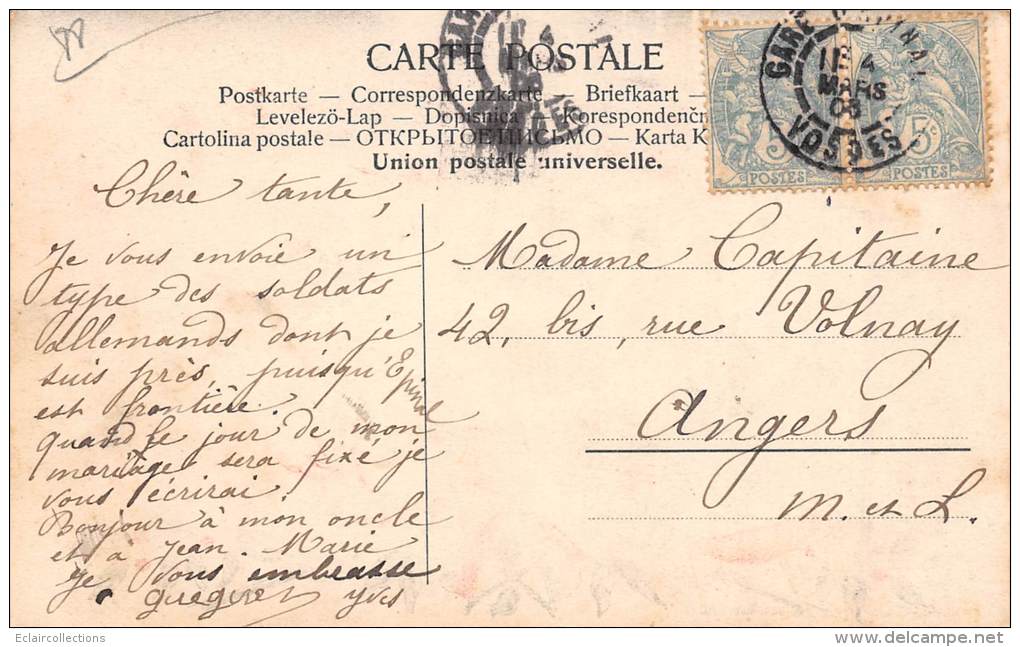 CARTE POSTALE
Postkarte — Correspondenzkarte — Briefkaart —
Levelező-Lap — Dopisnica — Korespondenčn
Cartolina postale — ОТКРЫТОЕ ПИСЬМО — Karta K
Union postale universelle.
GARE D'EPINAL
4
MARS
VOSGES
5c 5c
POSTES POSTES
Chère tante,
Je vous envoie un
type des soldats
allemands dont je
suis près, puisqu'Epinal
est frontière.
Quand le jour de mon
mariage sera fixé je
vous écrirai.
Bonjour à mon oncle
et à Jean-Marie
Je vous embrasse
Yves
Madame Capitaine
42, bis, rue Volnay
Angers
M. et L.
Eclaircollections
http://eclaircollections.delcampe.net